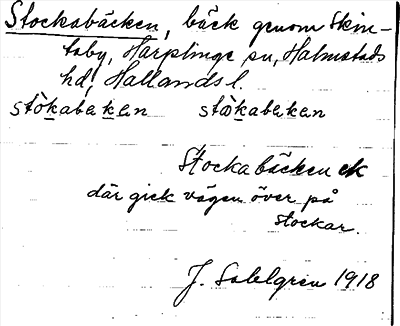 Stockabäcken, bäck genom Skin-
taby, Harplinge sn, Halmstads
hd, Hallands l.
stòkabäkan stòkabäkan
Stockabäcken ek
där gick vägen över på
stockar.
J. Sahlgren 1918